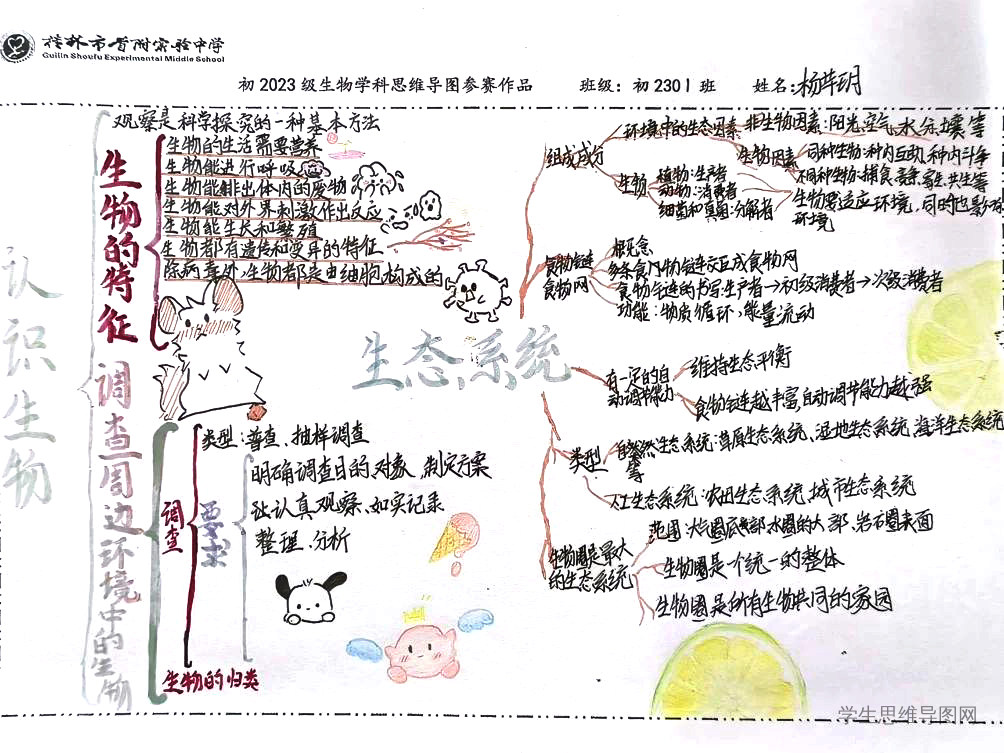 桂林市首附实验中学
Guilin Shoufu Experimental Middle School
初2023级生物学科思维导图参赛作品 班级：初2301班 姓名：
认识生物
生物的特征
观察是科学探究的一种基本方法
生物的生活需要营养
生物能进行呼吸
生物能排出体内的废物
生物能对外界刺激作出反应
生物能生长和繁殖
生物都有遗传和变异的特征
除病毒外,生物都是由细胞构成的
调查周边环境中的生物
调查
类型:普查、抽样调查
要求
明确调查目的、对象、制定方案
认真观察、如实记录
整理、分析
生物的归类
生态系统
组成成分
环境中的生态因素
非生物因素:阳光,空气,水分,土壤,等
生物因素
同种生物:种内互助,种内斗争
不同种生物:捕食,竞争,寄生,共生等
生物
植物:生产者
动物:消费者
细菌和真菌:分解者
生物要适应环境,同时也影响
环境
食物链
食物网
概念
多条食物链交互成食物网
食物链的书写:生产者→初级消费者→次级消费者
功能:物质循环,能量流动
有一定的自
动调节能力
维持生态平衡
食物链越丰富,自动调节能力越强
类型
自然生态系统:草原生态系统、湿地生态系统,海洋生态系统
等
人工生态系统:农田生态系统,城市生态系统
生物圈是最大
的生态系统
范围:大气圈底部,水圈的大部,岩石圈表面
生物圈是一个统一的整体
生物圈是所有生物共同的家园
学生思维导图网